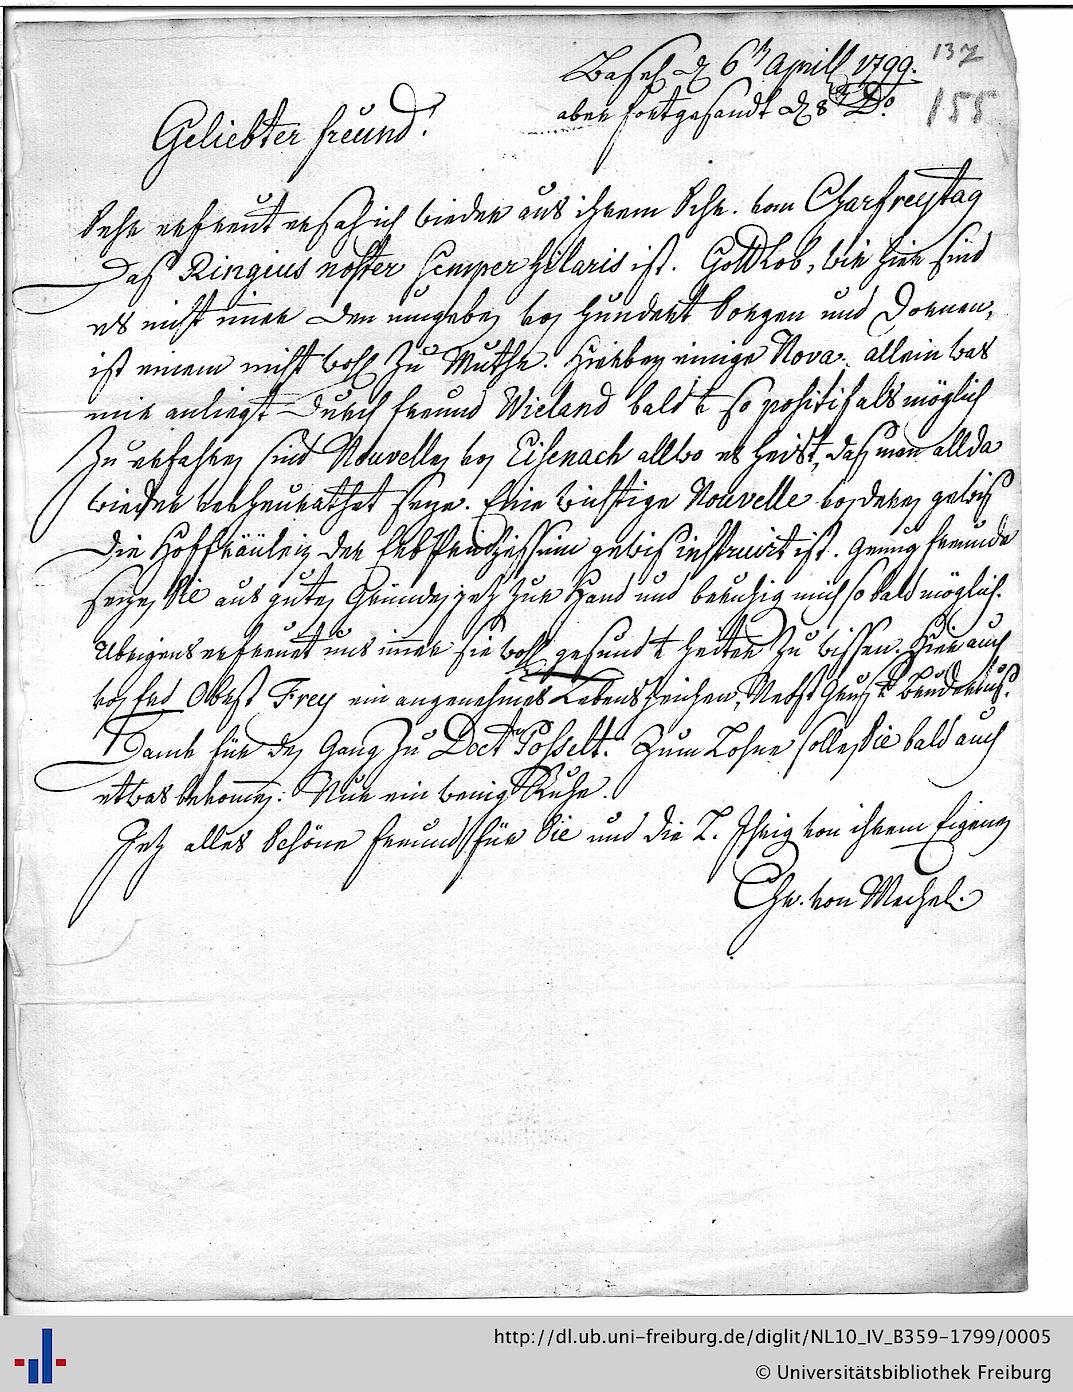 137
Basel d 6t Aprill 1799.
aber fortgesandt d 8t Do.
155
Geliebter Freund!
Sehr erfreut ersah ich wieder aus ihrem Schr. vom Charfreytag
Das Ringius noster semper hilaris ist. Gottlob, wir hier sind
es nicht immer Den umgeben von hundert Sorgen und Dornen,
ist einem nicht wohl zu Muthe. Hierbey einige Nova. allein was
mir anliegt durch Freund Wieland bald so positif als möglich
zu erfahren sind Nouvellen von Eisenach allwo es heist, daß man allda
wieder verheurathet seye. Eine wichtige Nouvelle von deren gewis
die Hoffräulein der gewis instruirt ist. genug Freunde
seyen Sie aus guten Gründen zur Hand und beruhig mich so bald möglich.
Ubrigens erfreuet uns immer sie wohl gesundt heiter zu wissen. Hier auch
von Obrist Frey ein angenehmes Lebenszeichen, Nebst Gruß Bruderkuß.
Dank für den Gang zu Doctr Posselt. Zum Lohne sollen Sie bald auch
etwas bekommen: Nur ein wenig Ruhe.
Jetz alles Schöne Freund für Sie und die L. Ihrig von ihrem Eigenen
Chr. von Mechel.
http://dl.ub.uni-freiburg.de/diglit/NL10_IV_B359-1799/0005
© Universitätsbibliothek Freiburg